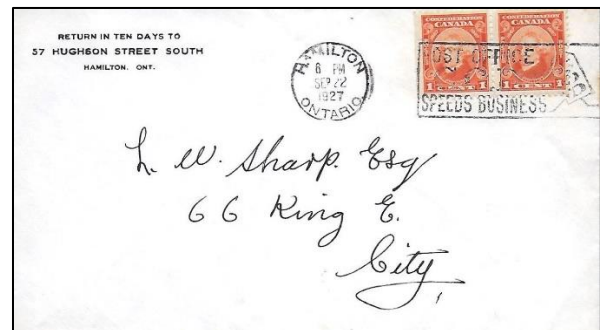 RETURN IN TEN DAYS TO
57 HUGHSON STREET SOUTH
HAMILTON, ONT.
HAMILTON
6 PM
SEP 22
1927
ONTARIO
CONFEDERATION CONFEDERATION
CANADA CANADA
1 CENT 1 1 CENT 1
POST OFFICE
SPEEDS BUSINESS
L. W. Sharp. Esq
66 King E.
City,